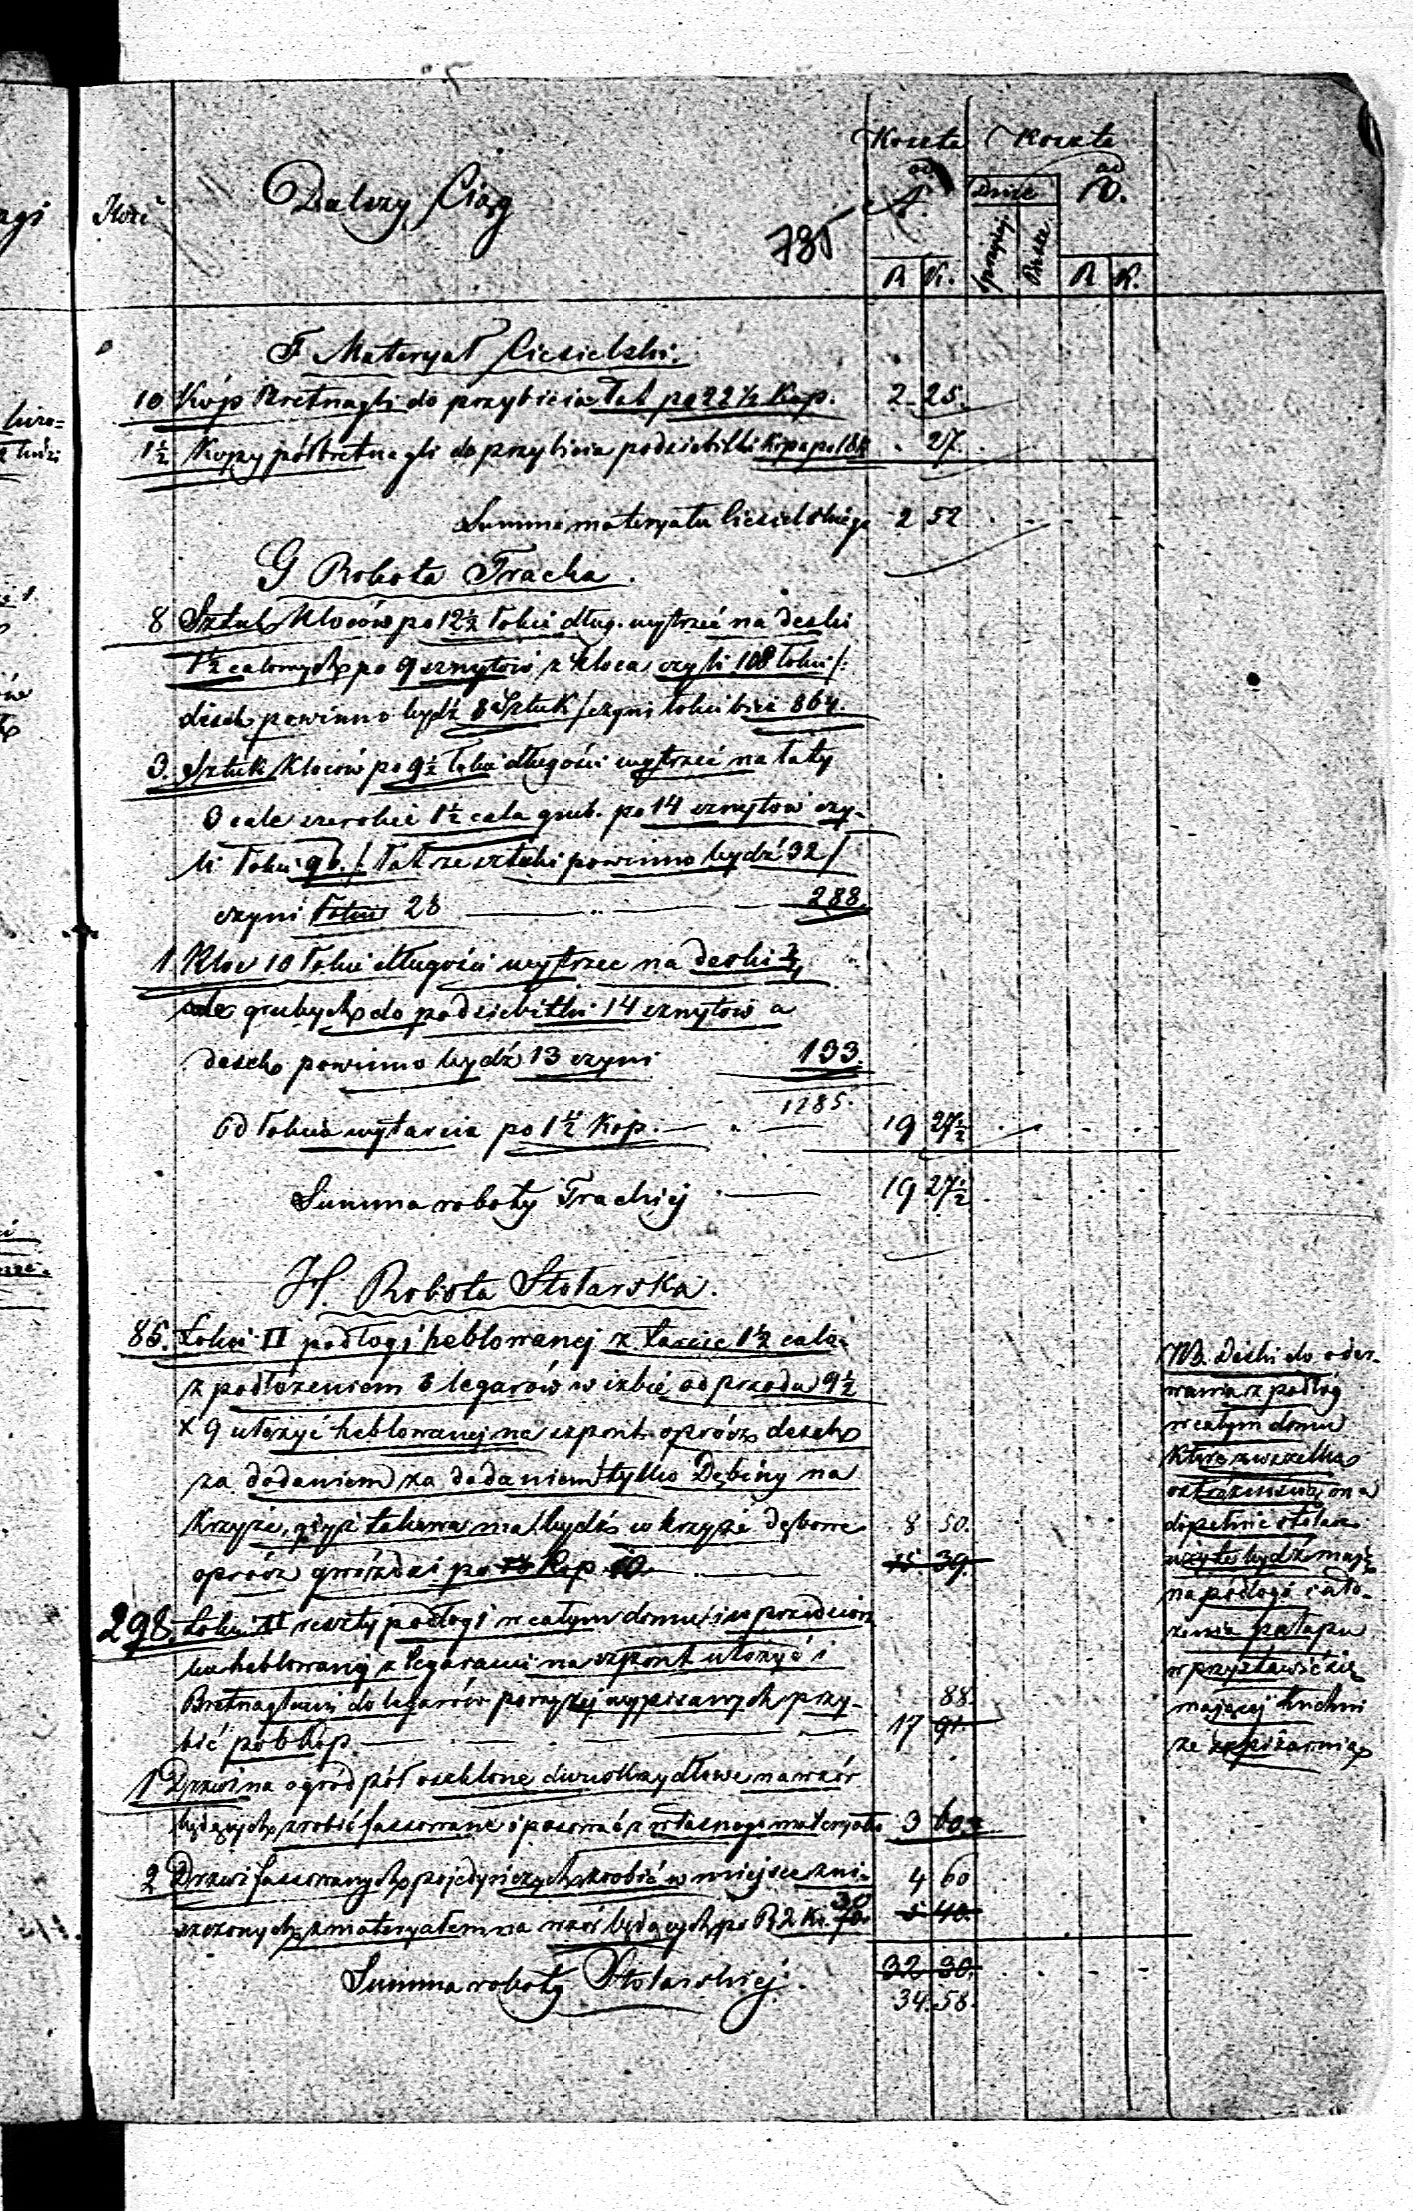 Ilość
Dalszy Ciąg
785
Koszta
Koszta
ad
Dnie
ad
D.
R K.
R K.
F Materyał Ciesielski.
10 Kóp Bretnagli do przybicia Łat po 22 ½ Kop. 2 25.
1½ Kopy półbretnagli do przybicia podsiebitki 27.
Summa materyału Ciesielskiego 2 52
G Robota Tracka.
8 Sztuk Kloców po 12½ łokci dług. wytrzeć na deski
1½ calowych po 9 sznytów z kloca czyli 108 łokci /:
desek powinno bydź 8 Sztuk / czyni łokci bież 864.
3. Sztuk Kloców po 9½ łokci długości wytrzeć na łaty
3 cale szerokie 1½ cala grub. po 14 sznytów czy-
li łokci 96. /: Łat ze sztuki powinno bydź 32 /
czyni łokci 28 288.
1 Kloc 10 łokci długości wytrzeć na deski ¾
cale grubych do podsiebitki 14 sznytów a
desek powinno bydź 13 czyni 133.
1285.
Od łokcia wytarcia po 1½ Kop. 19 27½
Summa roboty Trackiej 19 27½
H. Robota Stolarska.
86. Łokci II podłogi heblowanej z tarcic 1½ cala
z podłożeniem 8 legarów w izbie od przodu 9½
x 9 ułożyć heblowanej na szpont oprócz desek
za dodaniem za dodaniem tylko Dębiny na
Krzyże, gdyż takowa ma bydź w krzyże dębowe 8 50.
oprócz gwoździ po Kop 10 39.
298. Łokci II reszty podłogi w całym domu i w przedsion
ku heblowanej z legarami na szpont ułożyć i
Bretnaglami do legarów powyżej wypisanych przy- 88.
bić po 6 Kop. 17 91.
1 Drzwi na ogród pół oszklone dwuskrzydłowe na wzór
będących zrobić fassowane i pasować z własnego materyału 3 60.
2 Drzwi fassowanych pojedyńczych zrobić w miejsce zni- 4 60
szczonych z materyałem na wzór będących po R 2 K. 30 5 40.
Summa roboty Stolarskiej. 32 30.
34. 58.
NB. Deski do oder-
wania z podłóg
w całym domu
które z wszelką
ostrożnością ma
dopełnić stolarz
użyte bydź mają
na podłogi i uło-
żenia pałapu
w przystawić się
mającej kuchni
ze spiżarnią